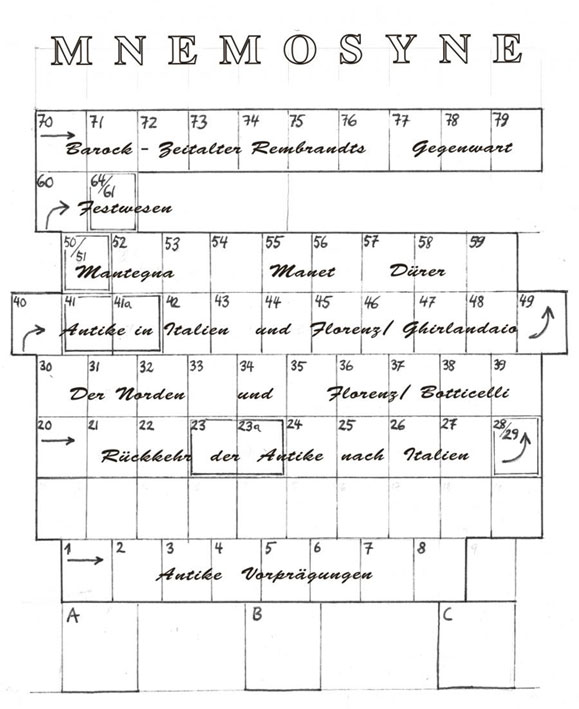 MNEMOSYNE
70 71 72 73 74 75 76 77 78 79
Barock - Zeitalter Rembrandts Gegenwart
60 64/61
Festwesen
50/51 52 53 54 55 56 57 58 59
Mantegna Manet Dürer
40 41 41a 42 43 44 45 46 47 48 49
Antike in Italien und Florenz/ Ghirlandaio
30 31 32 33 34 35 36 37 38 39
Der Norden und Florenz/ Botticelli
20 21 22 23 23a 24 25 26 27 28/29
Rückkehr der Antike nach Italien
1 2 3 4 5 6 7 8
Antike Vorprägungen
A B C